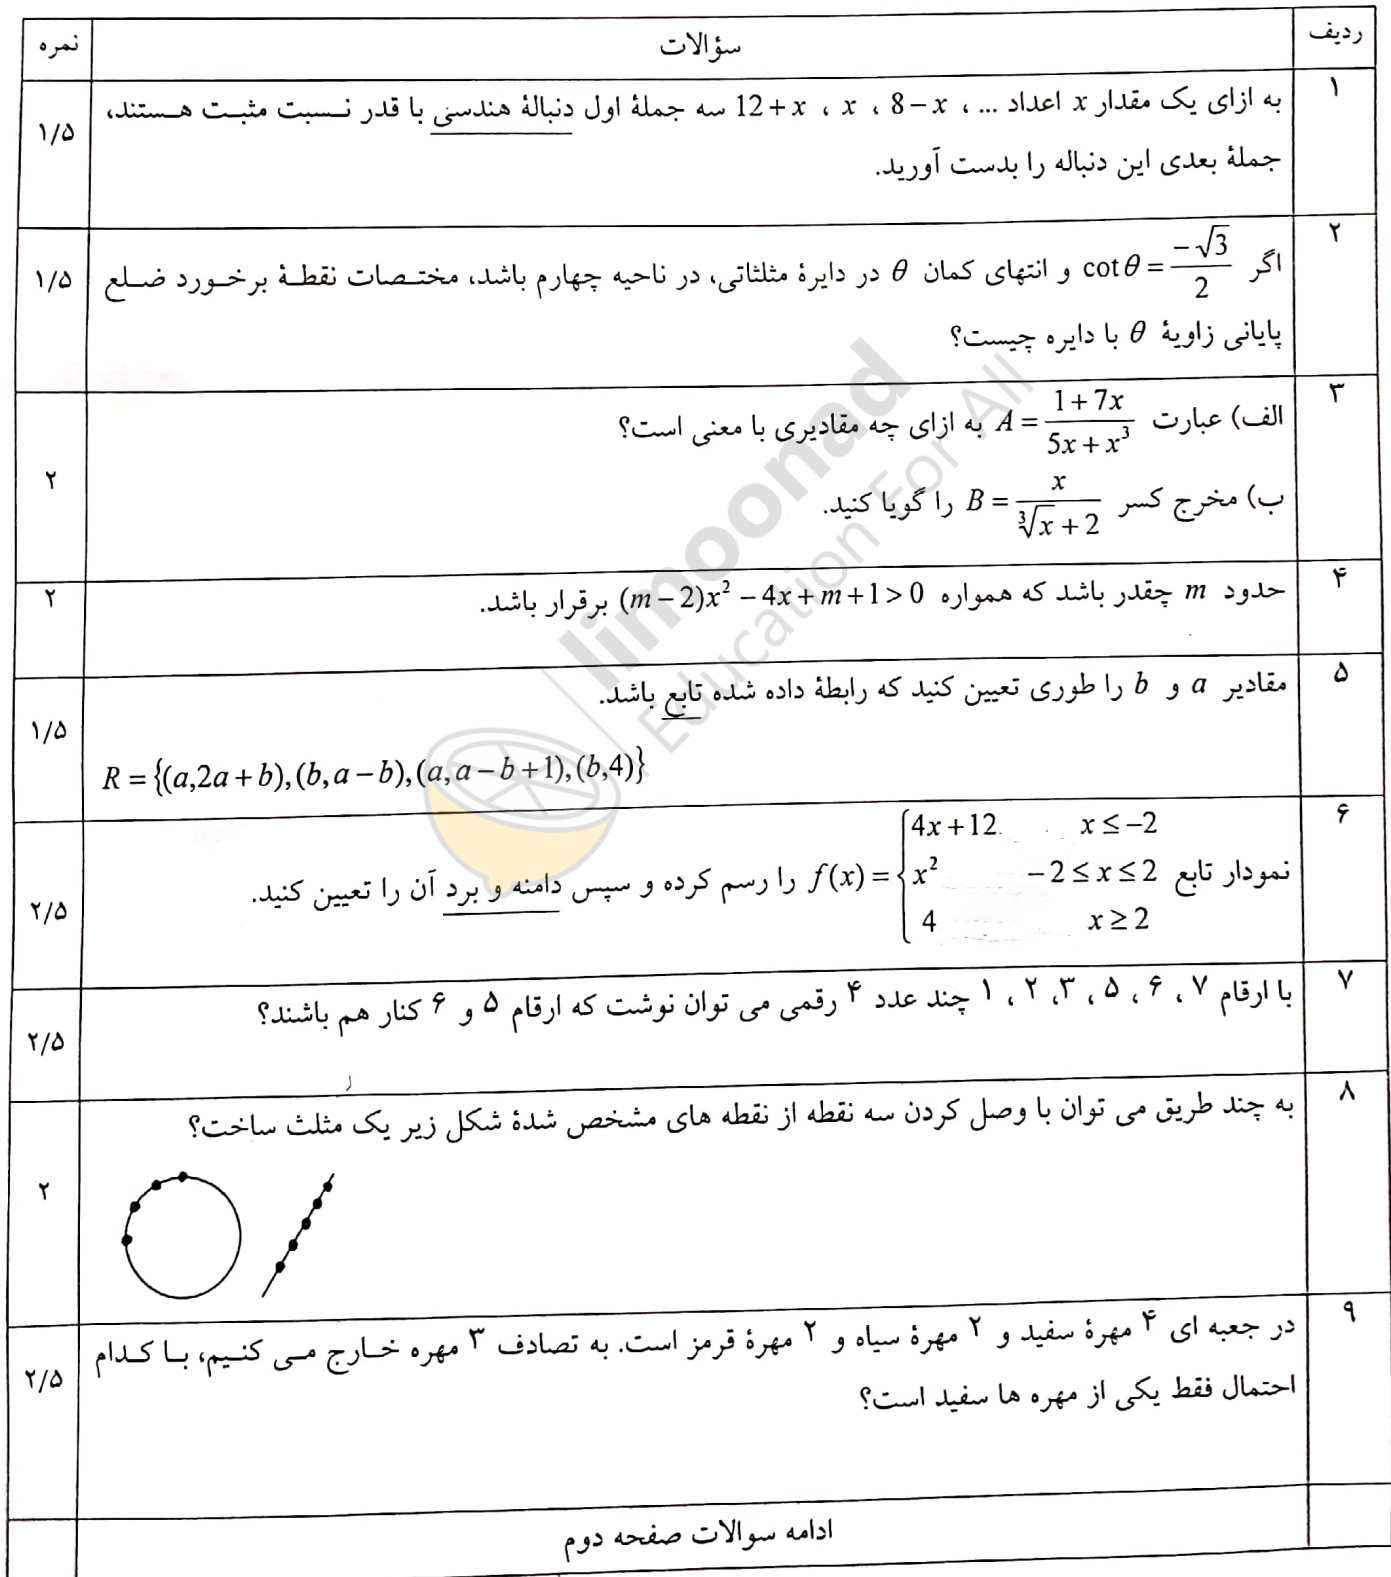 ردیف سؤالات نمره
۱ به ازای یک مقدار x اعداد ... ، 8−x ، x ، 12+x سه جملهٔ اول دنبالهٔ هندسی با قدر نسبت مثبت هستند، ۱/۵
جملهٔ بعدی این دنباله را بدست آورید.
۲ اگر cotθ = −√3/2 و انتهای کمان θ در دایرهٔ مثلثاتی، در ناحیه چهارم باشد، مختصات نقطهٔ برخورد ضلع ۱/۵
پایانی زاویهٔ θ با دایره چیست؟
۳ الف) عبارت A = (1+7x)/(5x+x³) به ازای چه مقادیری با معنی است؟ ۲
ب) مخرج کسر B = x/(∛x+2) را گویا کنید.
۴ حدود m چقدر باشد که همواره (m−2)x²−4x+m+1>0 برقرار باشد. ۲
۵ مقادیر a و b را طوری تعیین کنید که رابطهٔ داده شده تابع باشد. ۱/۵
R = {(a,2a+b),(b,a−b),(a,a−b+1),(b,4)}
۶ نمودار تابع f(x) = { 4x+12 x≤−2
x² −2≤x≤2 را رسم کرده و سپس دامنه و برد آن را تعیین کنید. ۲/۵
4 x≥2
۷ با ارقام ۷ ، ۶ ، ۵ ، ۳، ۲ ، ۱ چند عدد ۴ رقمی می توان نوشت که ارقام ۵ و ۶ کنار هم باشند؟ ۲/۵
۸ به چند طریق می توان با وصل کردن سه نقطه از نقطه های مشخص شدهٔ شکل زیر یک مثلث ساخت؟ ۲
۹ در جعبه ای ۴ مهرهٔ سفید و ۲ مهرهٔ سیاه و ۲ مهرهٔ قرمز است. به تصادف ۳ مهره خارج می کنیم، با کدام ۲/۵
احتمال فقط یکی از مهره ها سفید است؟
ادامه سوالات صفحه دوم
limoonad
Education For All